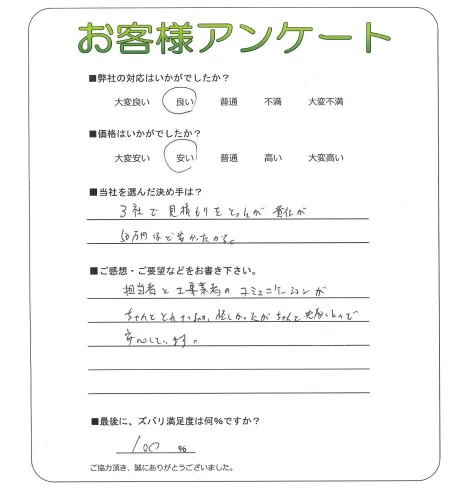 お客様アンケート
■弊社の対応はいかがでしたか？
大変良い 良い 普通 不満 大変不満
■価格はいかがでしたか？
大変安い 安い 普通 高い 大変高い
■当社を選んだ決め手は？
3社で見積もりをとったが 貴社が
50万円ほど安かったから。
■ご感想・ご要望などをお書き下さい。
担当者と工事業者のコミュニケーションが
ちゃんと とれ 怪しかったが ちゃんと ので
安心しています。
■最後に、ズバリ満足度は何%ですか？
100 %
ご協力頂き、誠にありがとうございました。